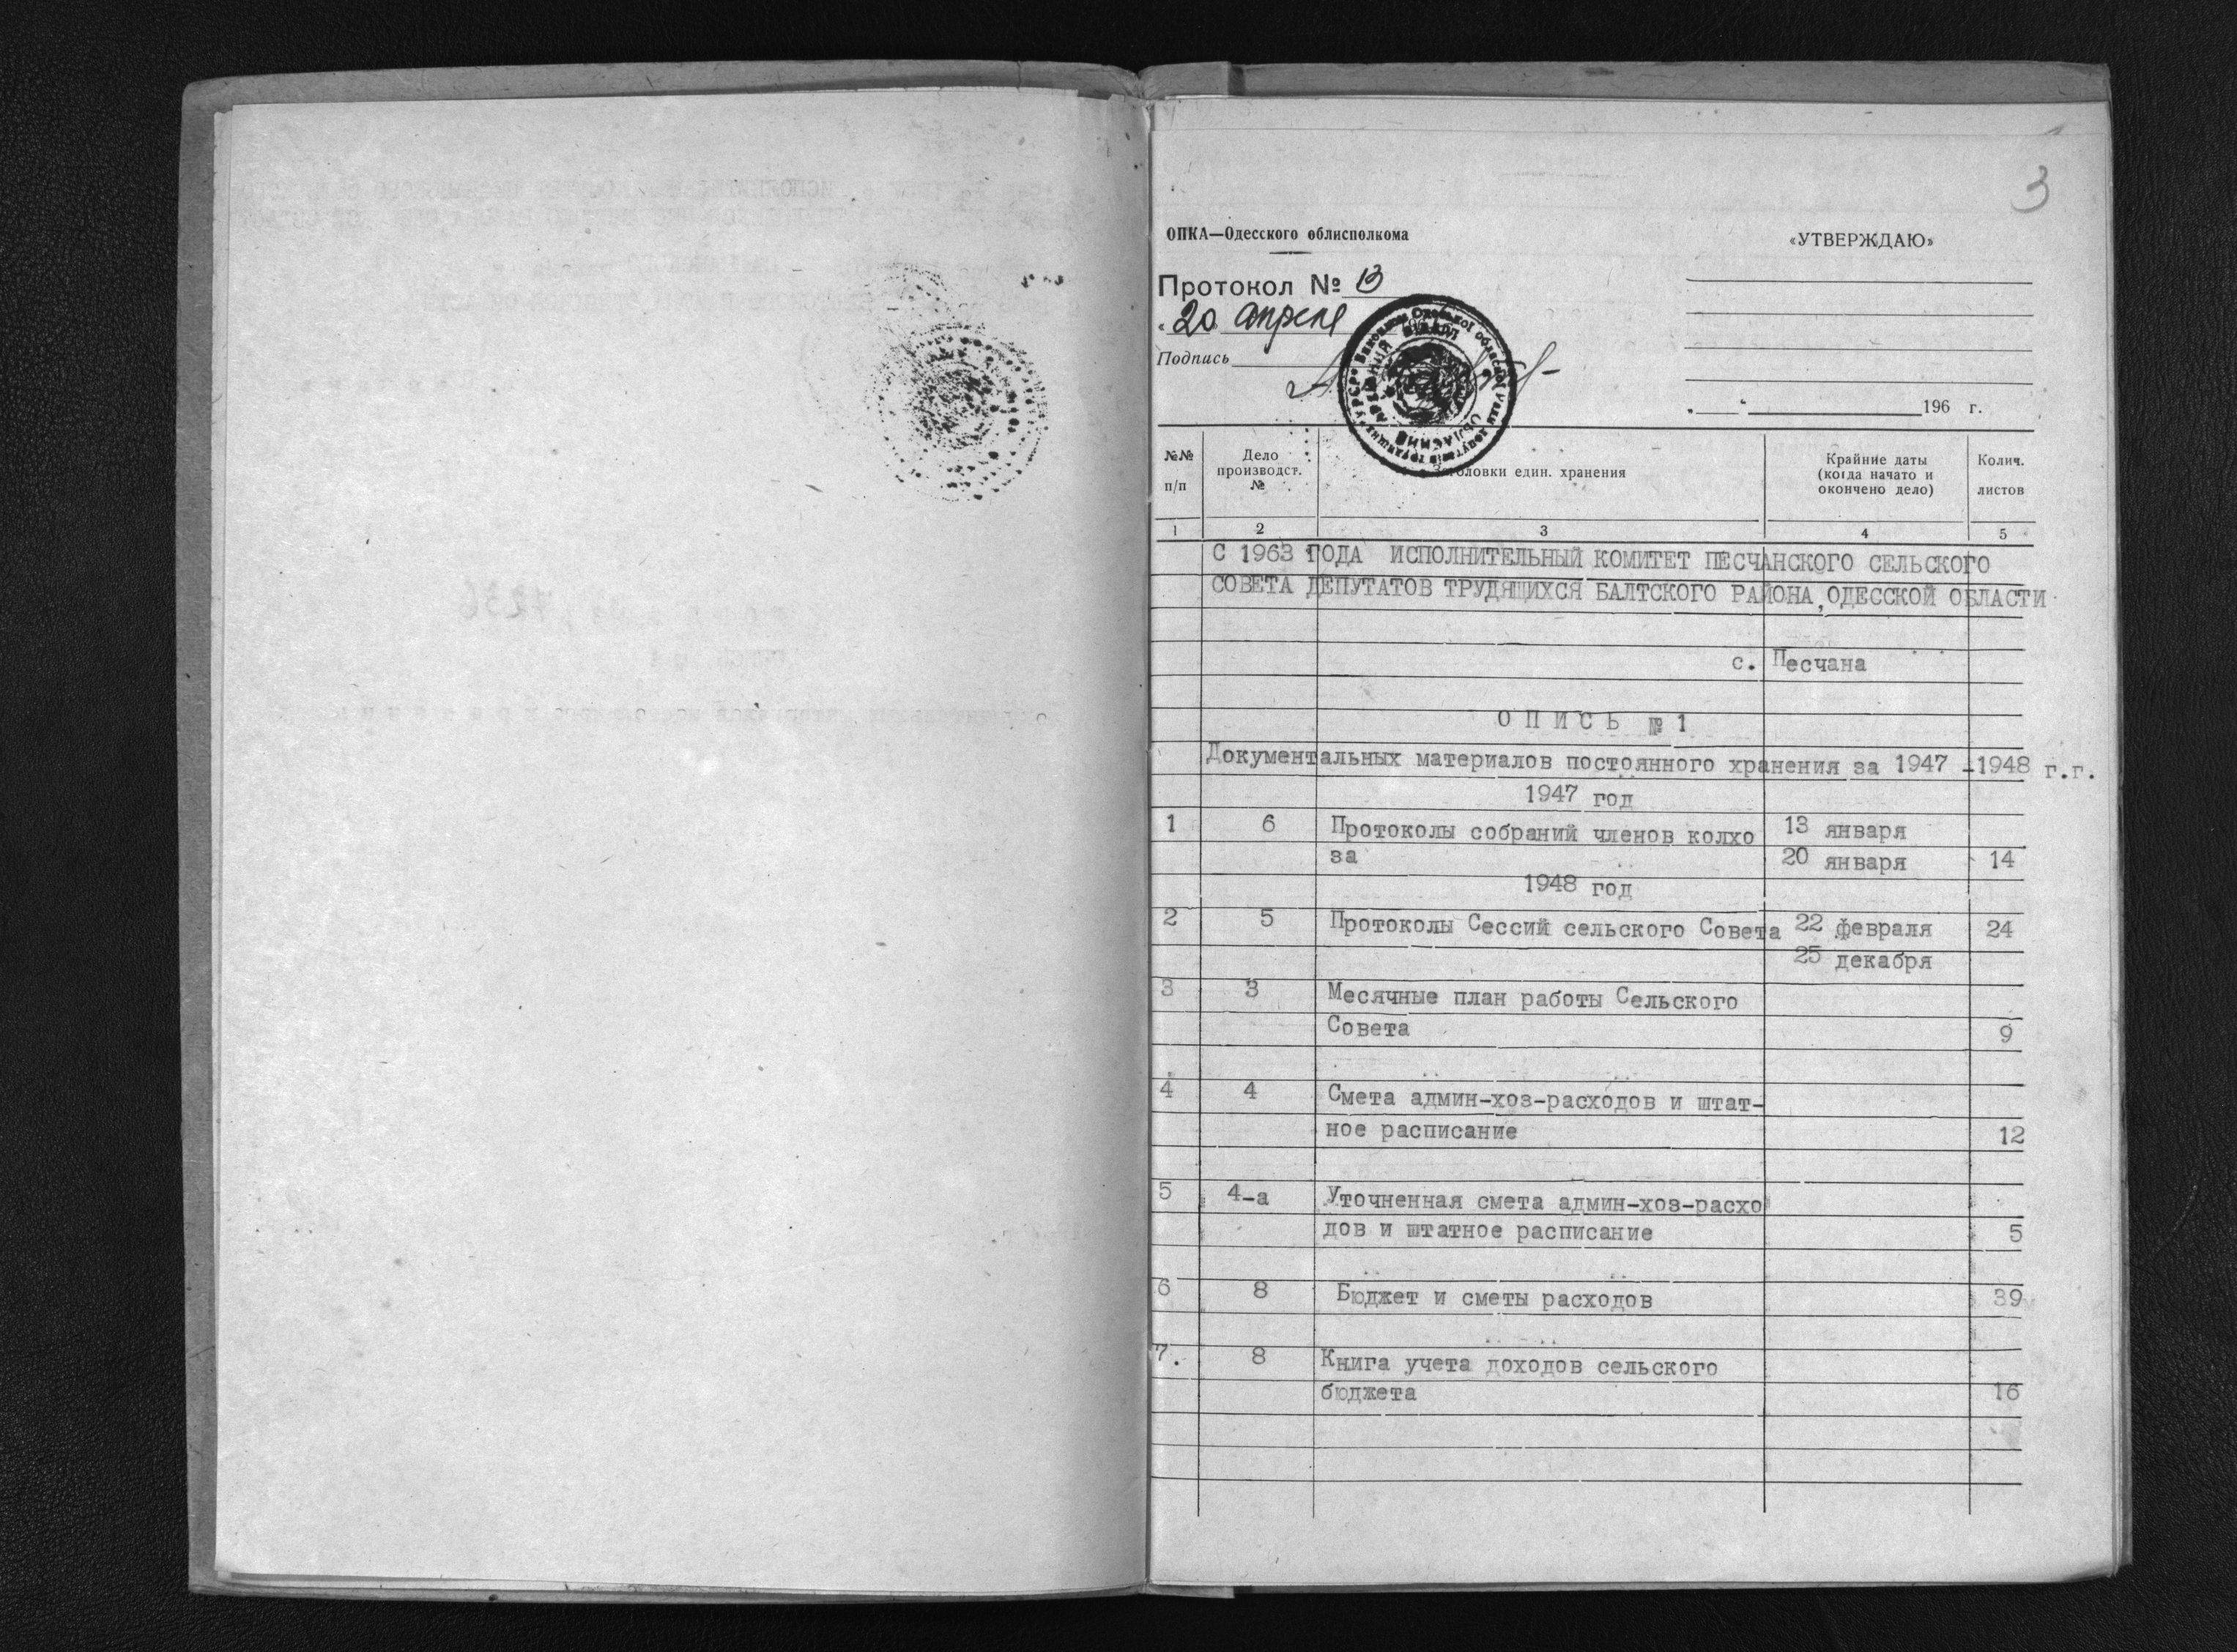 3
ОПКА—Одесского облисполкома
«УТВЕРЖДАЮ»
Протокол № 13
« 20 апреля
Подпись
196 г.
№№ п/п
Дело производст. №
Заголовки един. хранения
Крайние даты (когда начато и окончено дело)
Колич. листов
1 2 3 4 5
С 1963 ГОДА ИСПОЛНИТЕЛЬНЫЙ КОМИТЕТ ПЕСЧАНСКОГО СЕЛЬСКОГО
СОВЕТА ДЕПУТАТОВ ТРУДЯЩИХСЯ БАЛТСКОГО РАЙОНА, ОДЕССКОЙ ОБЛАСТИ
с. Песчана
О П И С Ь № 1
Документальных материалов постоянного хранения за 1947 -1948 г.г.
1947 год
1 6 Протоколы собраний членов колхо 13 января
за 20 января 14
1948 год
2 5 Протоколы Сессий сельского Совета 22 февраля 24
25 декабря
3 3 Месячные план работы Сельского
Совета 9
4 4 Смета админ-хоз-расходов и штат-
ное расписание 12
5 4-а Уточненная смета админ-хоз-расхо
дов и штатное расписание 5
6 8 Бюджет и сметы расходов 39
7. 8 Книга учета доходов сельского
бюджета 16